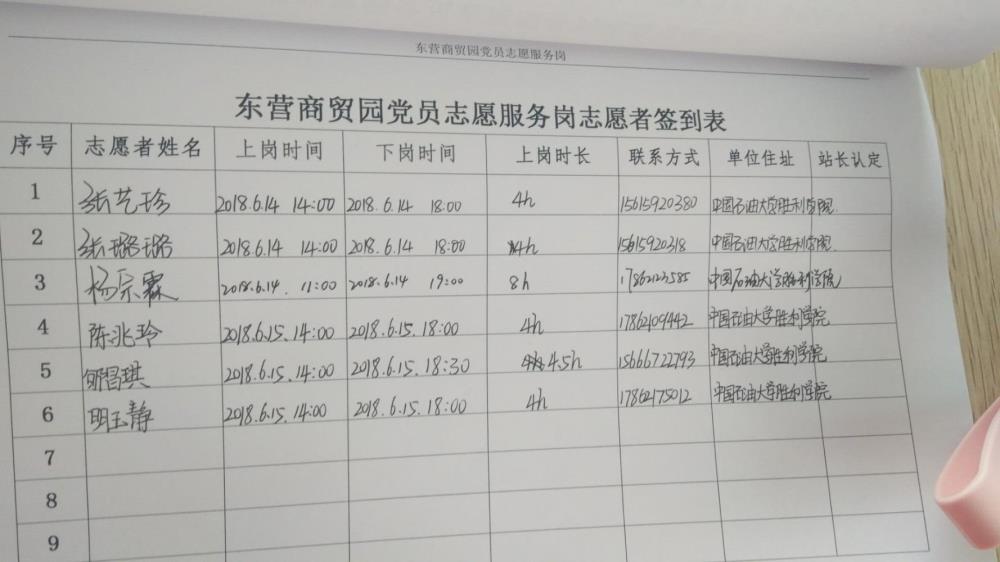 东营商贸园党员志愿服务岗
东营商贸园党员志愿服务岗志愿者签到表
序号 志愿者姓名 上岗时间 下岗时间 上岗时长 联系方式 单位住址 站长认定
1 张艺珍 2018.6.14 14:00 2018.6.14 18:00 4h 15615920380 中国石油大学胜利学院
2 张璐璐 2018.6.14 14:00 2018.6.14 18:00 4h 15615920318 中国石油大学胜利学院
3 杨宗霖 2018.6.14 11:00 2018.6.14 19:00 8h 17862123585 中国石油大学胜利学院
4 陈兆玲 2018.6.15.14:00 2018.6.15.18:00 4h 17862109442 中国石油大学胜利学院
5 邹昌琪 2018.6.15.14:00 2018.6.15.18:30 4.5h 15666722793 中国石油大学胜利学院
6 明玉静 2018.6.15.14:00 2018.6.15.18:00 4h 17862175012 中国石油大学胜利学院
7
8
9